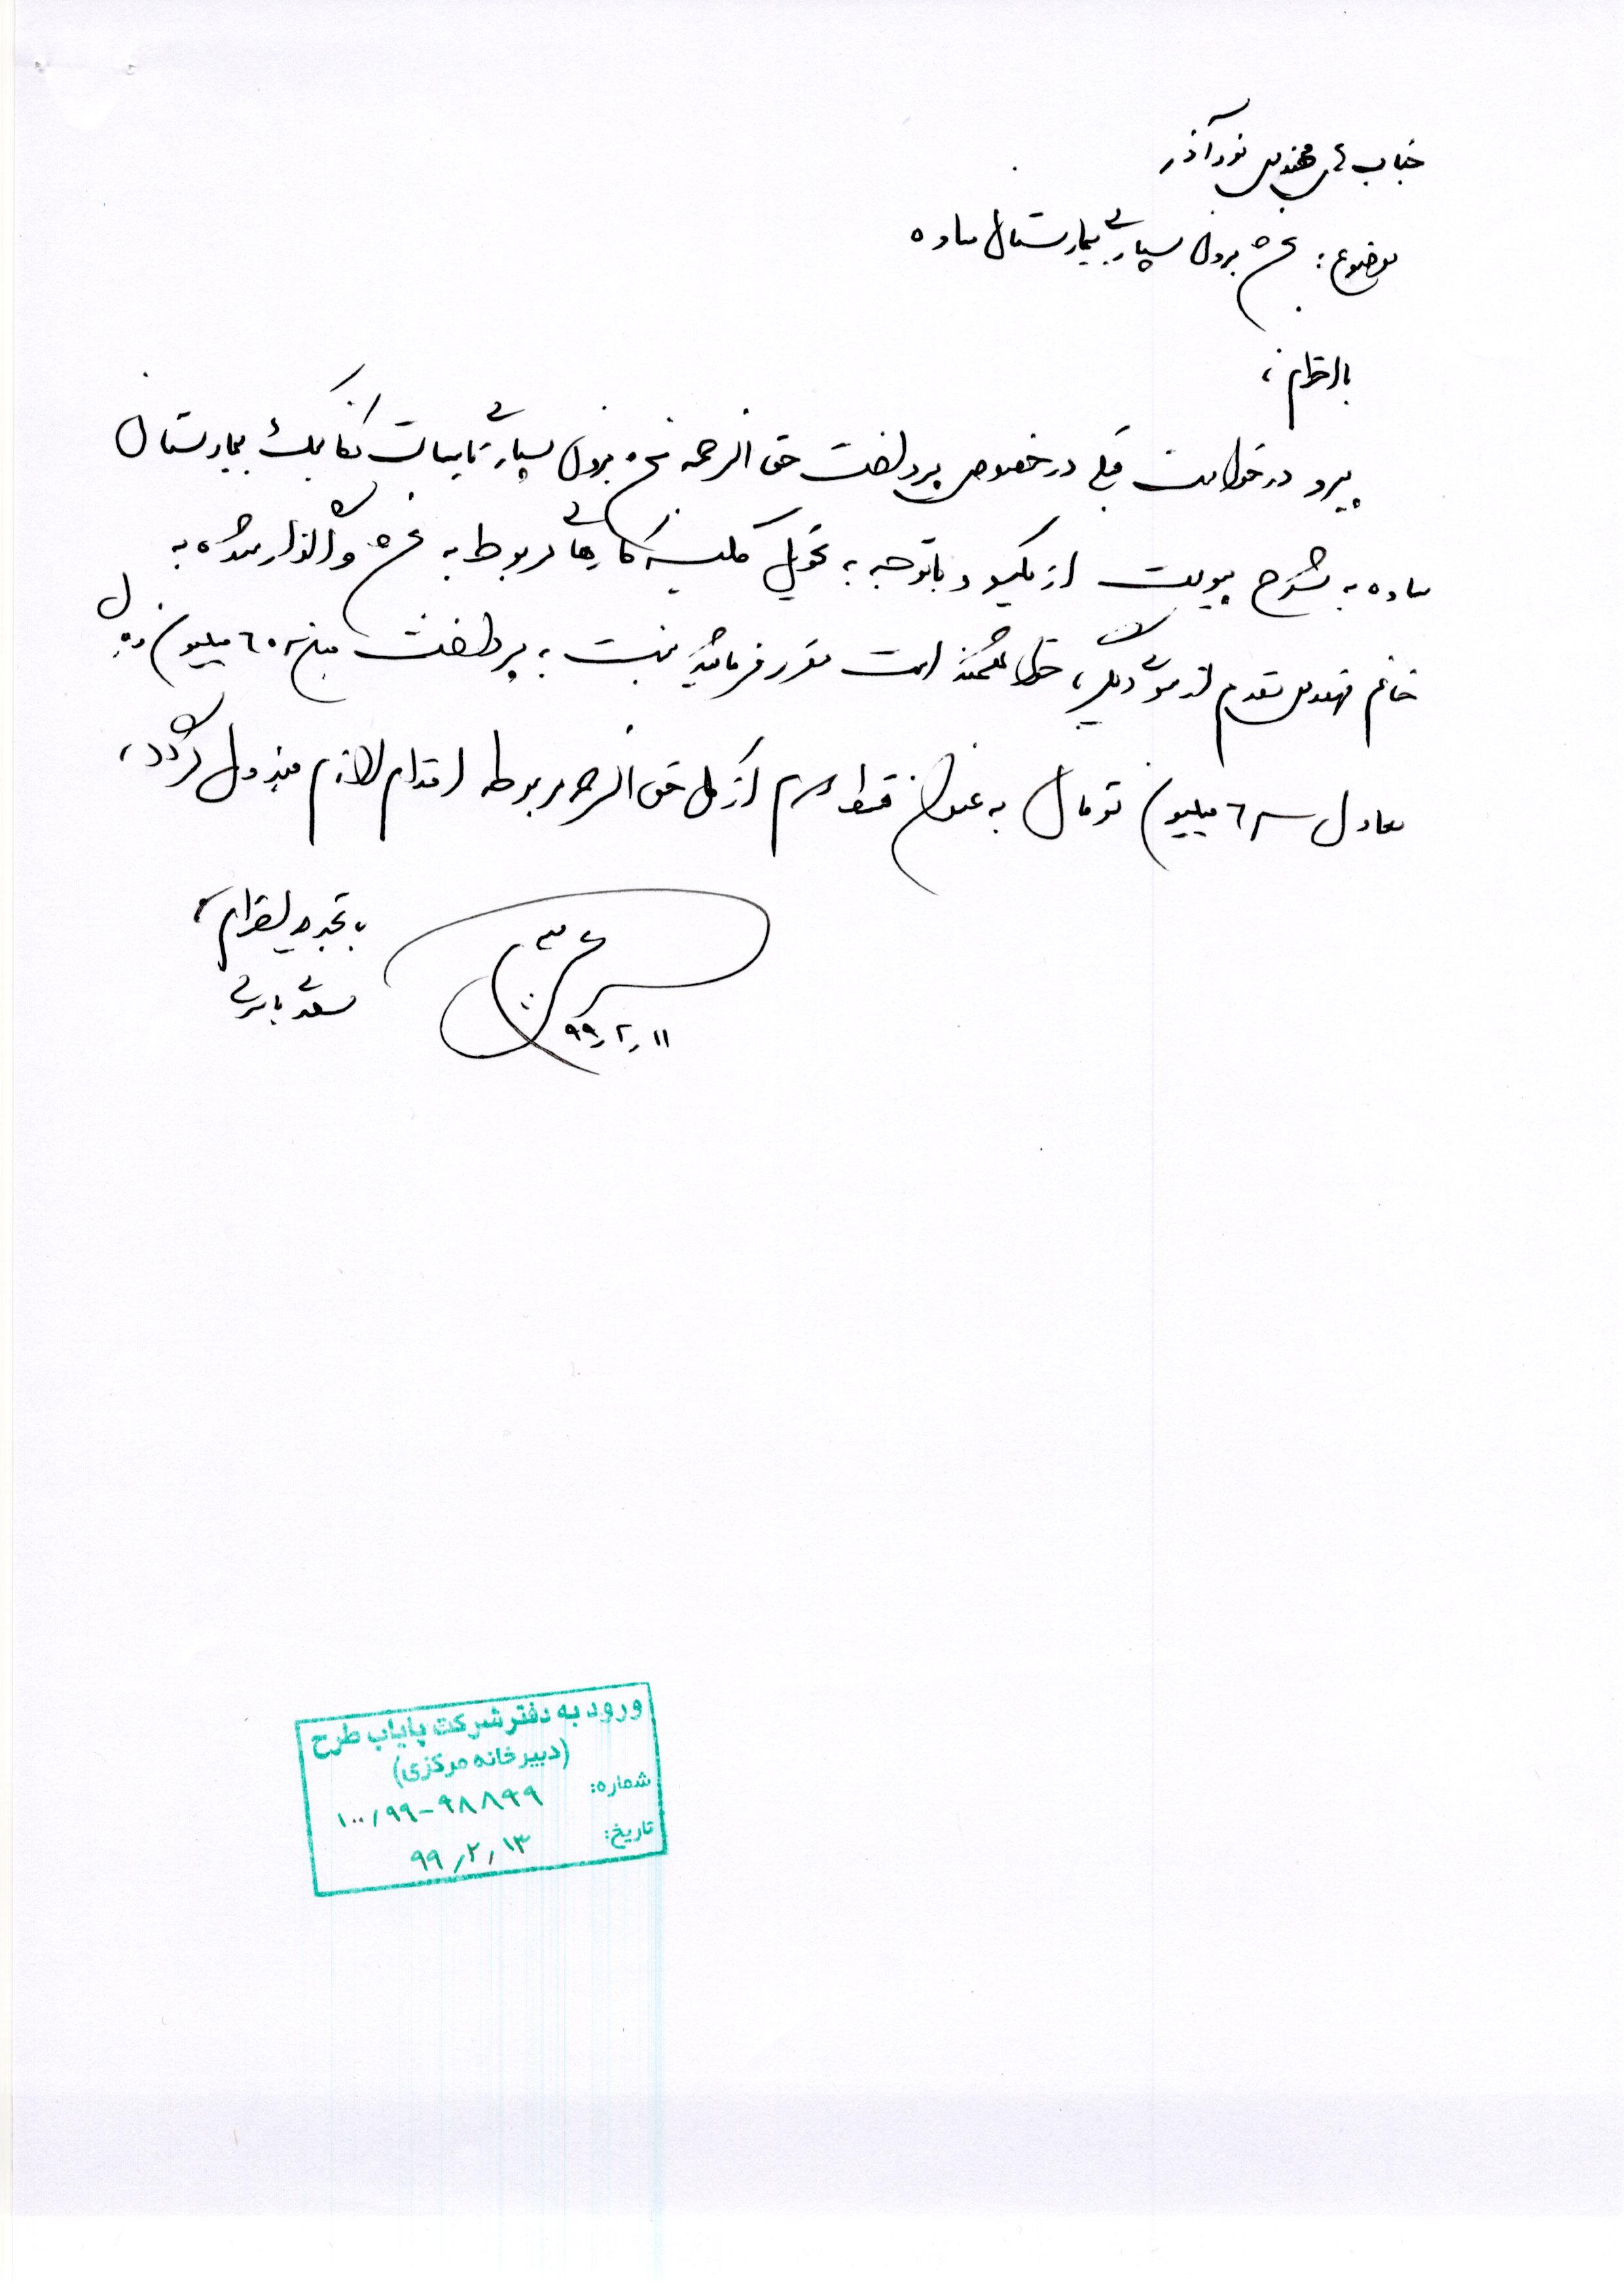 جناب آقای مهندس نورآذر
موضوع: نحوه برون سپاری بیمارستان ساوه
با احترام،
پیرو درخواست قبلی در خصوص پرداخت حق الزحمه نحوه برون سپاری تاسیسات مکانیک بیمارستان
ساوه به شرح پیوست از یکسو و با توجه به تحویل کلیه کارهای مربوط به واگذار شده به
خانم مهندس مقدم از سوی دیگر، خواهشمند است مقرر فرمائید نسبت به پرداخت مبلغ میلیون ریال
معادل میلیون تومان به عنوان قسط سوم از کل حق الزحمه مربوطه اقدام لازم مبذول گردد،
با تجدید احترام،
۹۹٫۲٫۱۱
ورود به دفتر شرکت پایاب طرح
(دبیرخانه مرکزی)
شماره: ۱۰۰/۹۹-۹۸۸۹۹
تاریخ: ۹۹٫۲٫۱۳